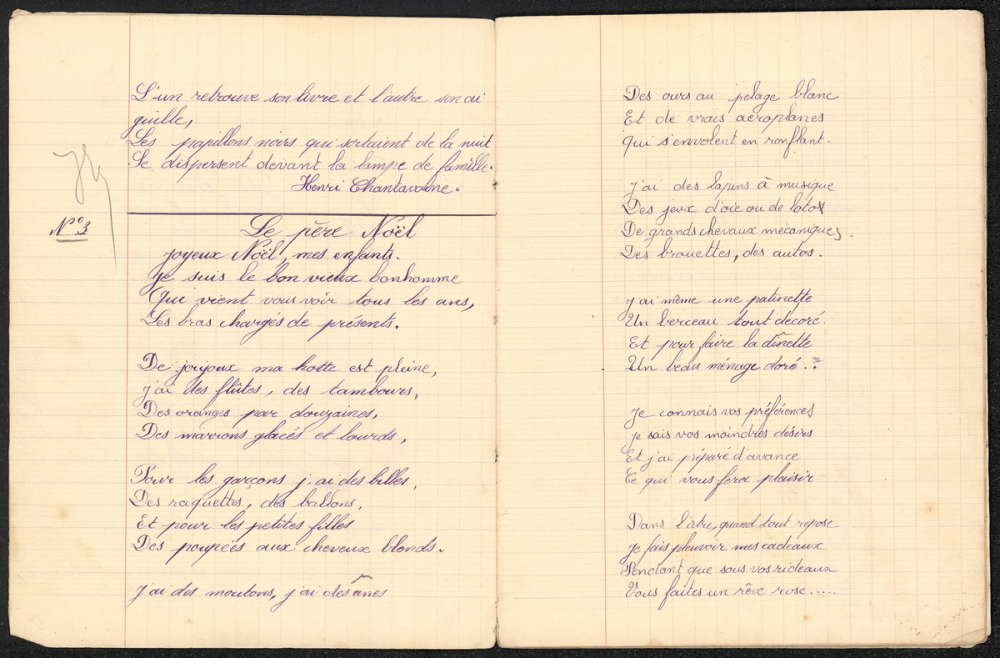 L'un retrouve son livre et l'autre son ai
guille,
Les papillons noirs qui sortaient de la nuit
Se dispersent devant la lampe de famille.
Henri Chantavoine.
N°3
Le père Noël
joyeux Noël, mes enfants.
Je suis le bon vieux bonhomme
Qui vient vous voir tous les ans,
Les bras chargés de présents.
De joujoux ma hotte est pleine,
j'ai des flûtes, des tambours,
Des oranges par douzaines,
Des marrons glacés et lourds,
Pour les garçons j'ai des billes,
Des raquettes, des ballons,
Et pour les petites filles
Des poupées aux cheveux blonds.
J'ai des moutons, j'ai des ânes
Des ours au pelage blanc
Et de vrais aéroplanes
Qui s'envolent en ronflant.
J'ai des lapins à musique
Des jeux d'oie ou de loto
De grands chevaux mécaniques.
Des brouettes, des autos.
J'ai même une patinette
Un berceau tout décoré.
Et pour faire la dînette
Un beau ménage doré.
Je connais vos préférences
je sais vos moindres désirs
Et j'ai préparé d'avance
Ce qui vous fera plaisir
Dans l'âtre, quand tout repose
Je fais pleuvoir mes cadeaux
Pendant que sous vos rideaux
Vous faites un rêve rose.....